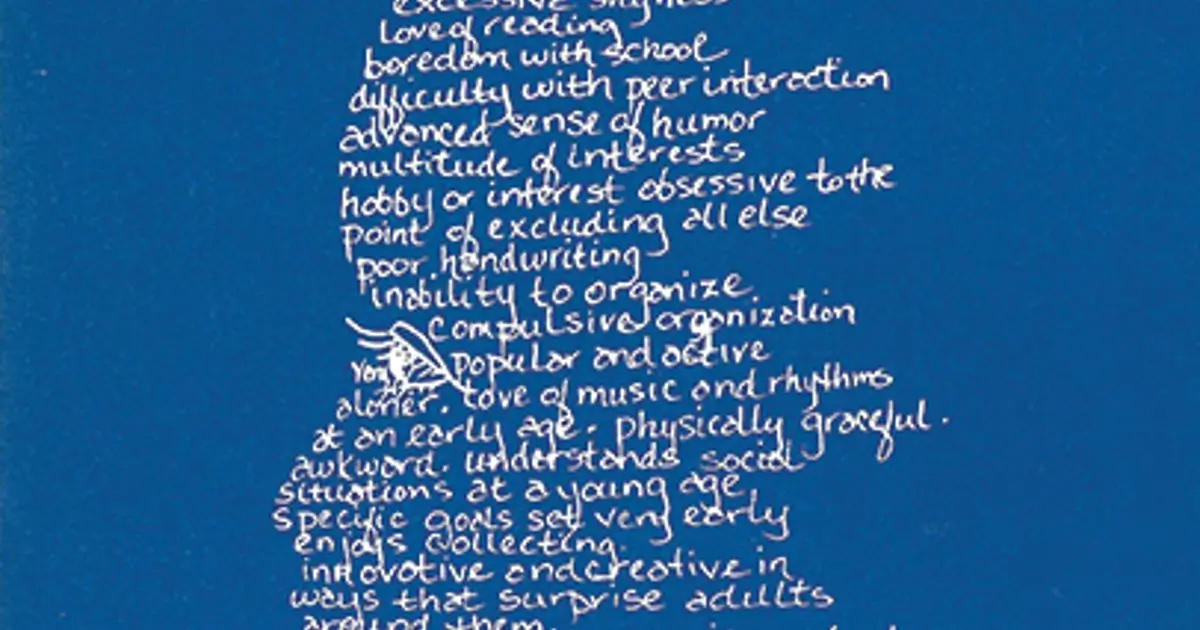 excessive shyness
Love of reading
boredom with school
difficulty with peer interaction
advanced sense of humor
multitude of interests
hobby or interest obsessive to the
point of excluding all else
poor handwriting
inability to organize
Compulsive organization
popular and active
aloner. Love of music and rhythms
at an early age. physically graceful.
awkward. understands social
situations at a young age
specific goals set very early
enjoys collecting.
innovative and creative in
ways that surprise adults
around them.